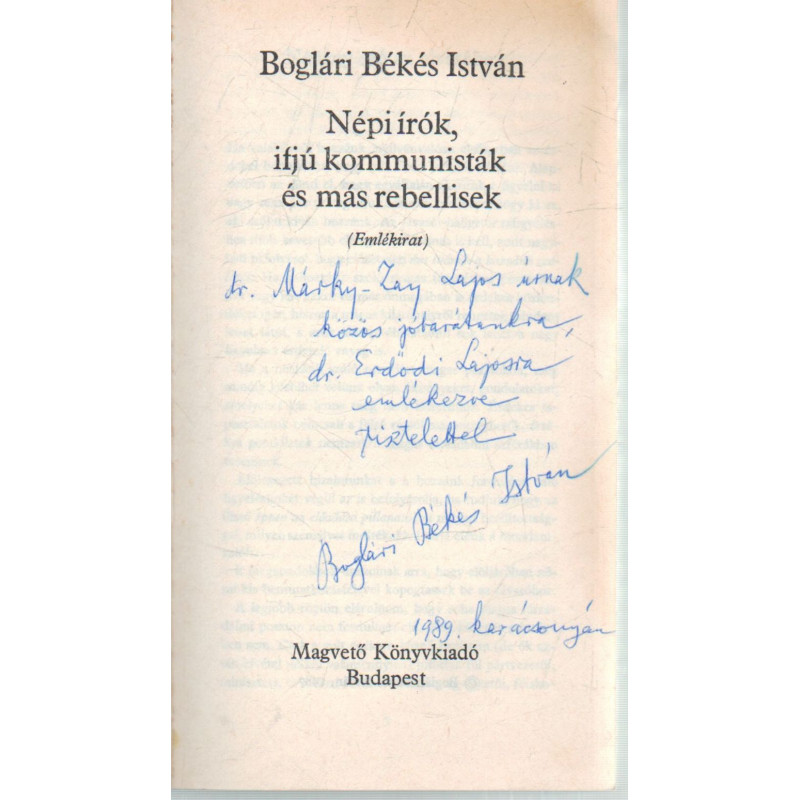 Boglári Békés István
Népi írók,
ifjú kommunisták
és más rebellisek
(Emlékirat)
dr. Márky-Zay Lajos úrnak
közös jóbarátunkra,
dr. Erdődi Lajosra
emlékezve
tisztelettel
Boglári Békés István
1989. karácsonyán
Magvető Könyvkiadó
Budapest